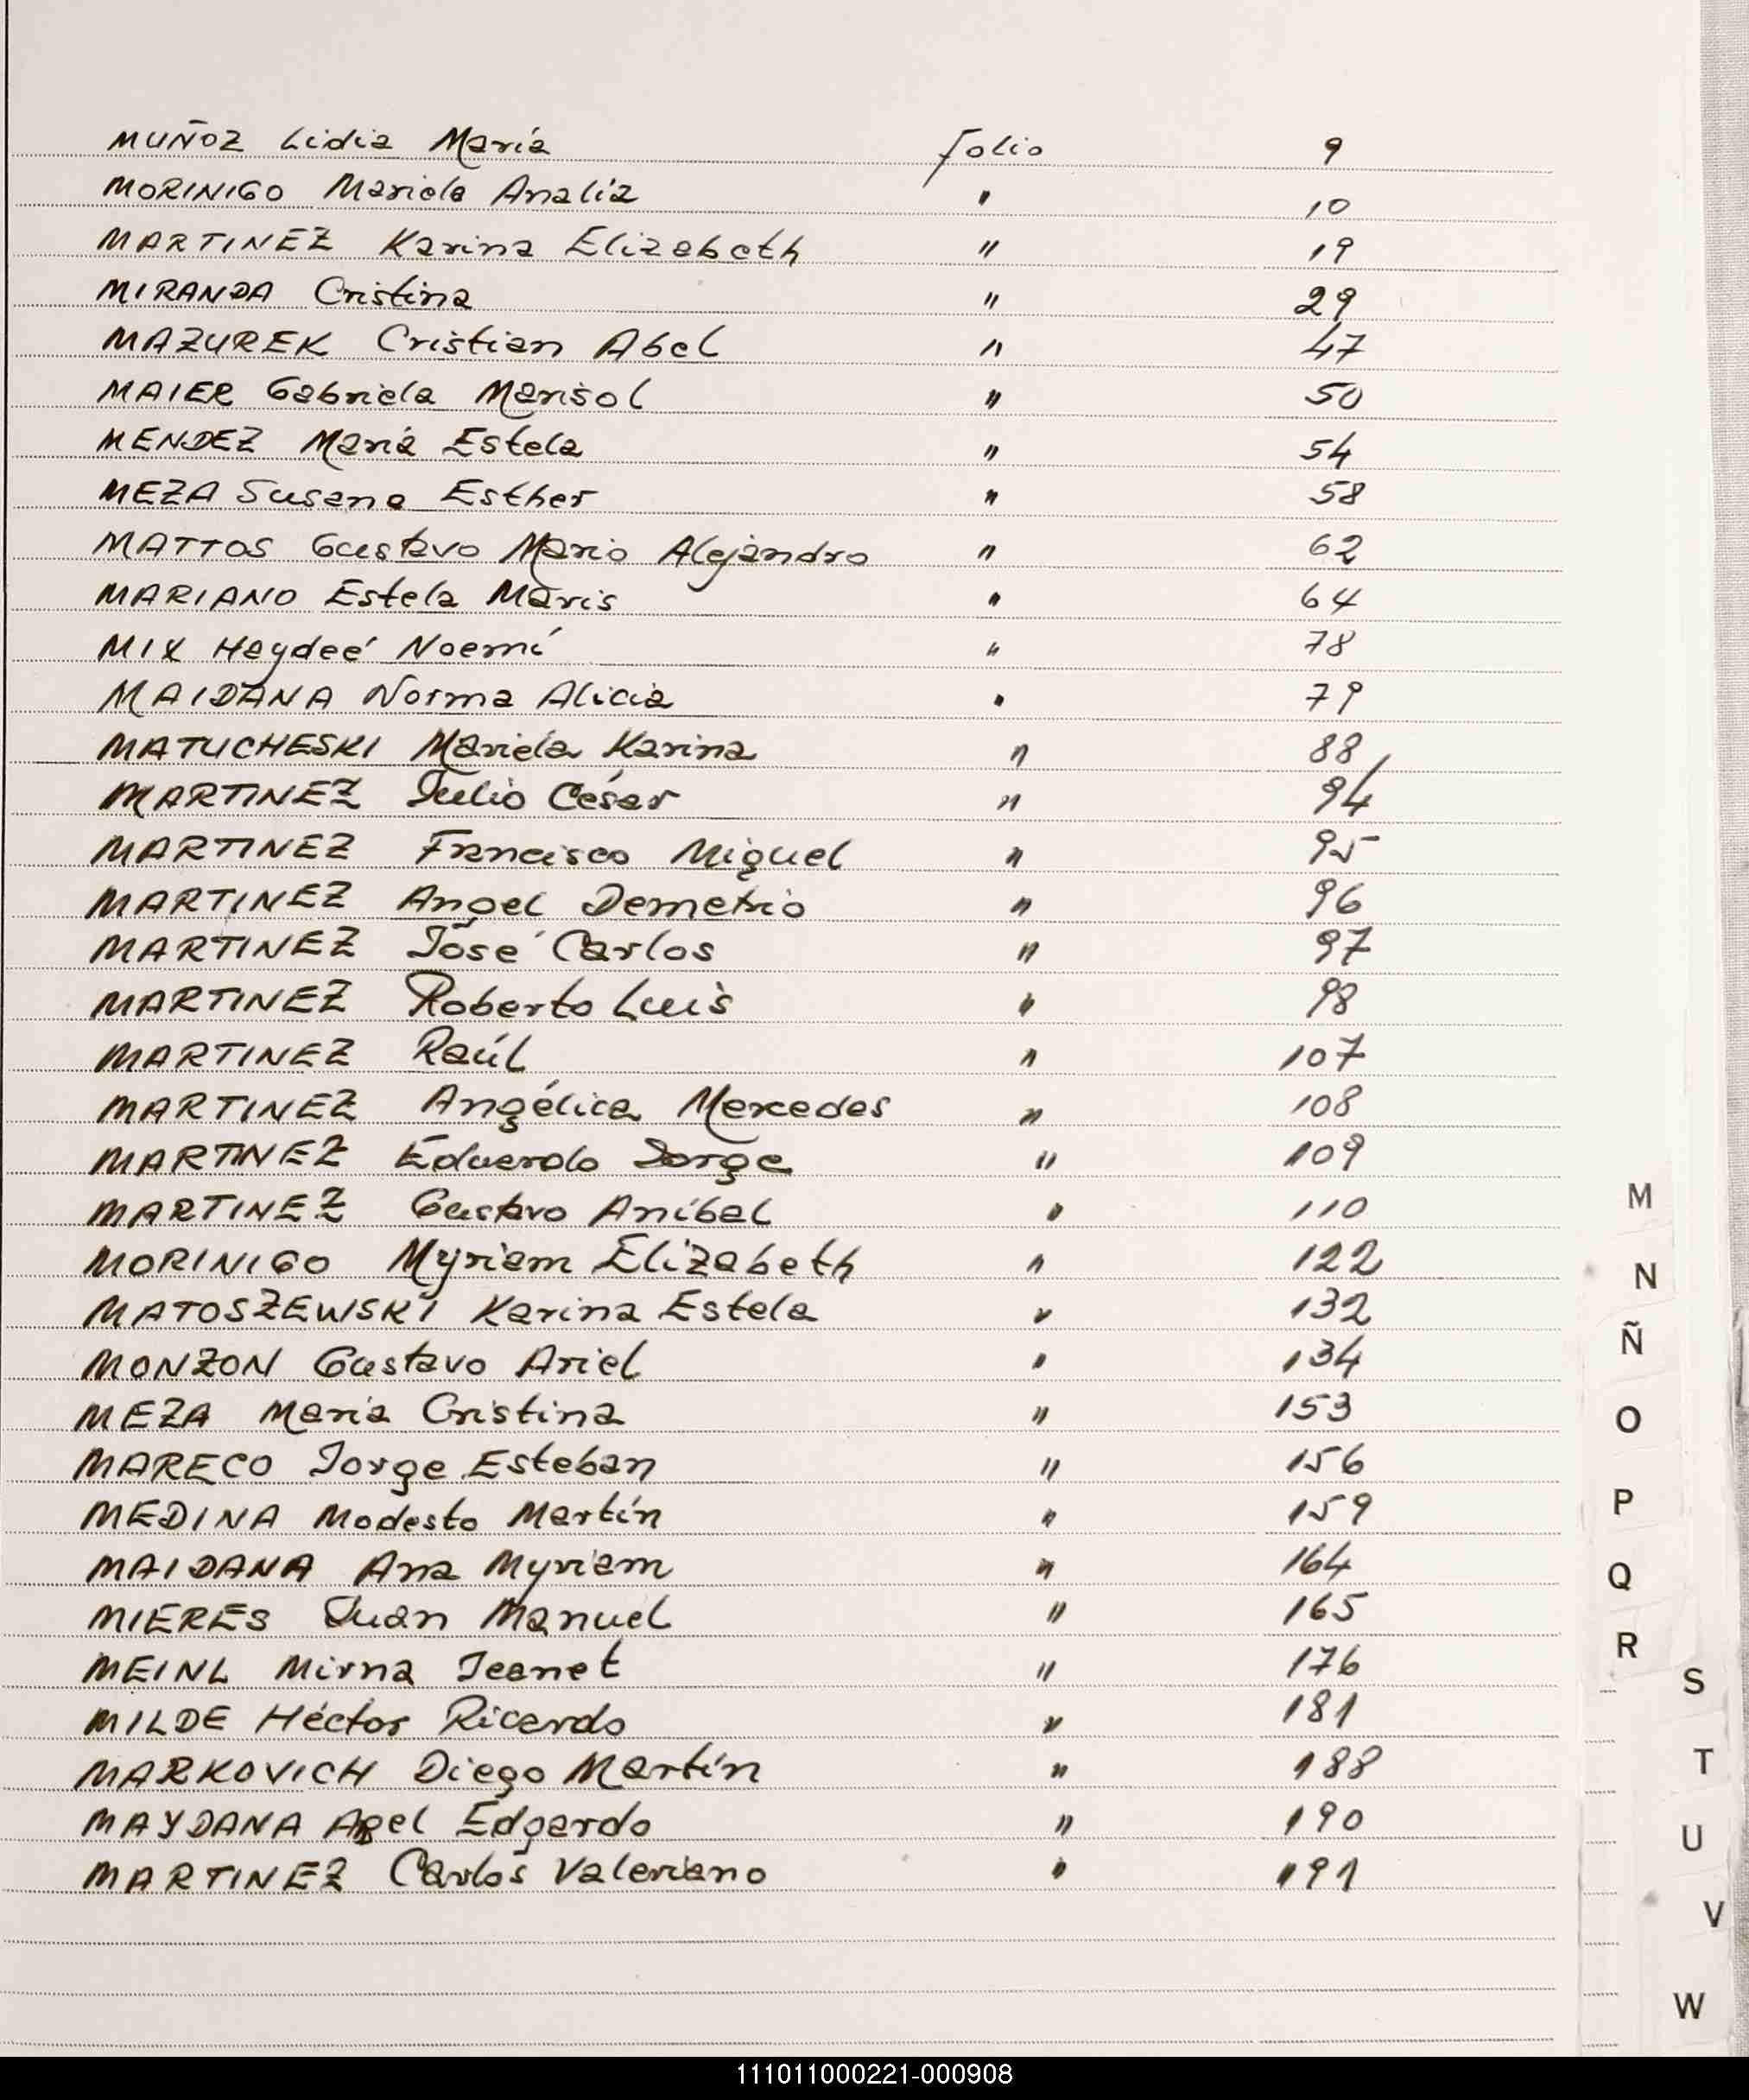 MUÑOZ Lidia María folio 9
MORINIGO Mariela Analía " 10
MARTINEZ Karina Elizabeth " 19
MIRANDA Cristina " 29
MAZUREK Cristian Abel " 47
MAIER Gabriela Marisol " 50
MENDEZ María Estela " 54
MEZA Susana Esther " 58
MATTOS Gustavo Mario Alejandro " 62
MARIANO Estela Maris " 64
MIX Haydeé Noemí " 78
MAIDANA Norma Alicia " 79
MATUCHESKI Mariela Karina " 88
MARTINEZ Julio César " 94
MARTINEZ Francisco Miguel " 95
MARTINEZ Angel Demetrio " 96
MARTINEZ José Carlos " 97
MARTINEZ Roberto Luis " 98
MARTINEZ Raúl " 107
MARTINEZ Angélica Mercedes " 108
MARTINEZ Eduardo Jorge " 109
MARTINEZ Gustavo Aníbal " 110
MORINIGO Myriam Elizabeth " 122
MATOSZEWSKI Karina Estela " 132
MONZON Gustavo Ariel " 134
MEZA María Cristina " 153
MARECO Jorge Esteban " 156
MEDINA Modesto Martín " 159
MAIDANA Ana Myriam " 164
MIERES Juan Manuel " 165
MEINL Mirna Jeanet " 176
MILDE Héctor Ricardo " 181
MARKOVICH Diego Martín " 188
MAYDANA Abel Edgardo " 190
MARTINEZ Carlos Valeriano " 191
M
N
Ñ
O
P
Q
R
S
T
U
V
W
111011000221-000908